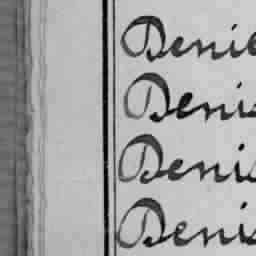 Denie
Denis
Denis
Denis